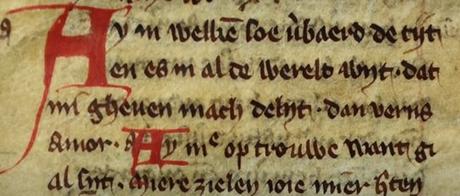 Ay in welkē soe v̄baerd de tijt
en es in al de werelt wijt · dat
mi gheuen mach delijt · dan verus
amor · Ay mᵉ op trouwe want gi
al sijt · miere zielen ioie mier h̄ten